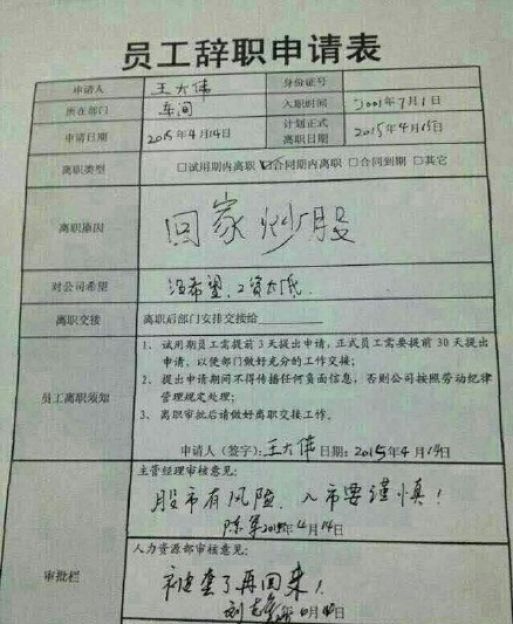 员工辞职申请表
申请人 王大伟 身份证号
所在部门 车间 入职时间 2001年7月1日
申请日期 2015年4月14日 计划正式离职日期 2015年4月15日
离职类型 □试用期内离职 ☑合同期内离职 □合同到期 □其它
离职原因 回家炒股
对公司希望 没希望、工资太低.
离职交接 离职后部门安排交接给
员工离职须知
1、试用期员工需提前3天提出申请,正式员工需要提前30天提出
申请,以便部门做好充分的工作交接;
2、提出申请期间不得传播任何负面信息,否则公司按照劳动纪律
管理规定处理;
3、离职审批后请做好离职交接工作。
申请人(签字):王大伟 日期:2015年4月14日
审批栏
主管经理审核意见:
股市有风险、入市要谨慎!
陈军 2015年4月14日
人力资源部审核意见:
被套了再回来!
刘 年 月 日